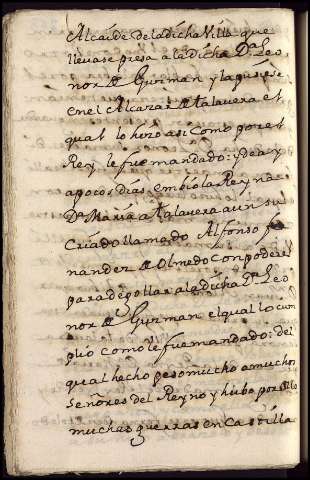 Alcaide de la dicha Villa que
llevase presa a la dicha Dª Leo
nor de Guzman y la pusiese
en el Alcazar de talavera el
qual lo hizo asi como por el
Rey le fue mandado: y de ay
apocos dias embio la Reyna
Dª Maria a talavera a un su
Criado llamado Alfonso fer
nandez de Olmedo con poderes
para degollar a la dicha Dª Leo
nor de Guzman el qual lo cum
plio como le fue mandado: del
qual hecho peso mucho a muchos
señores del Reyno y hubo por ello
muchas guerras en Castilla